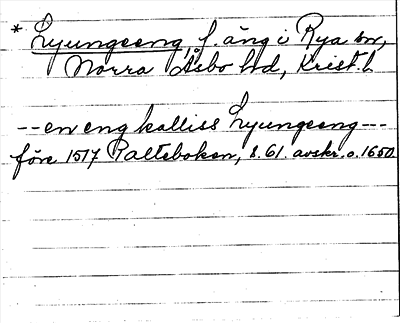 * Lyungeeng, f. äng i Rya sn,
Norra Åsbo hd, Krist. l.
-- en eng kalliss Lyungeeng ---
före 1517 Palteboken, s. 61. avskr. o. 1650.